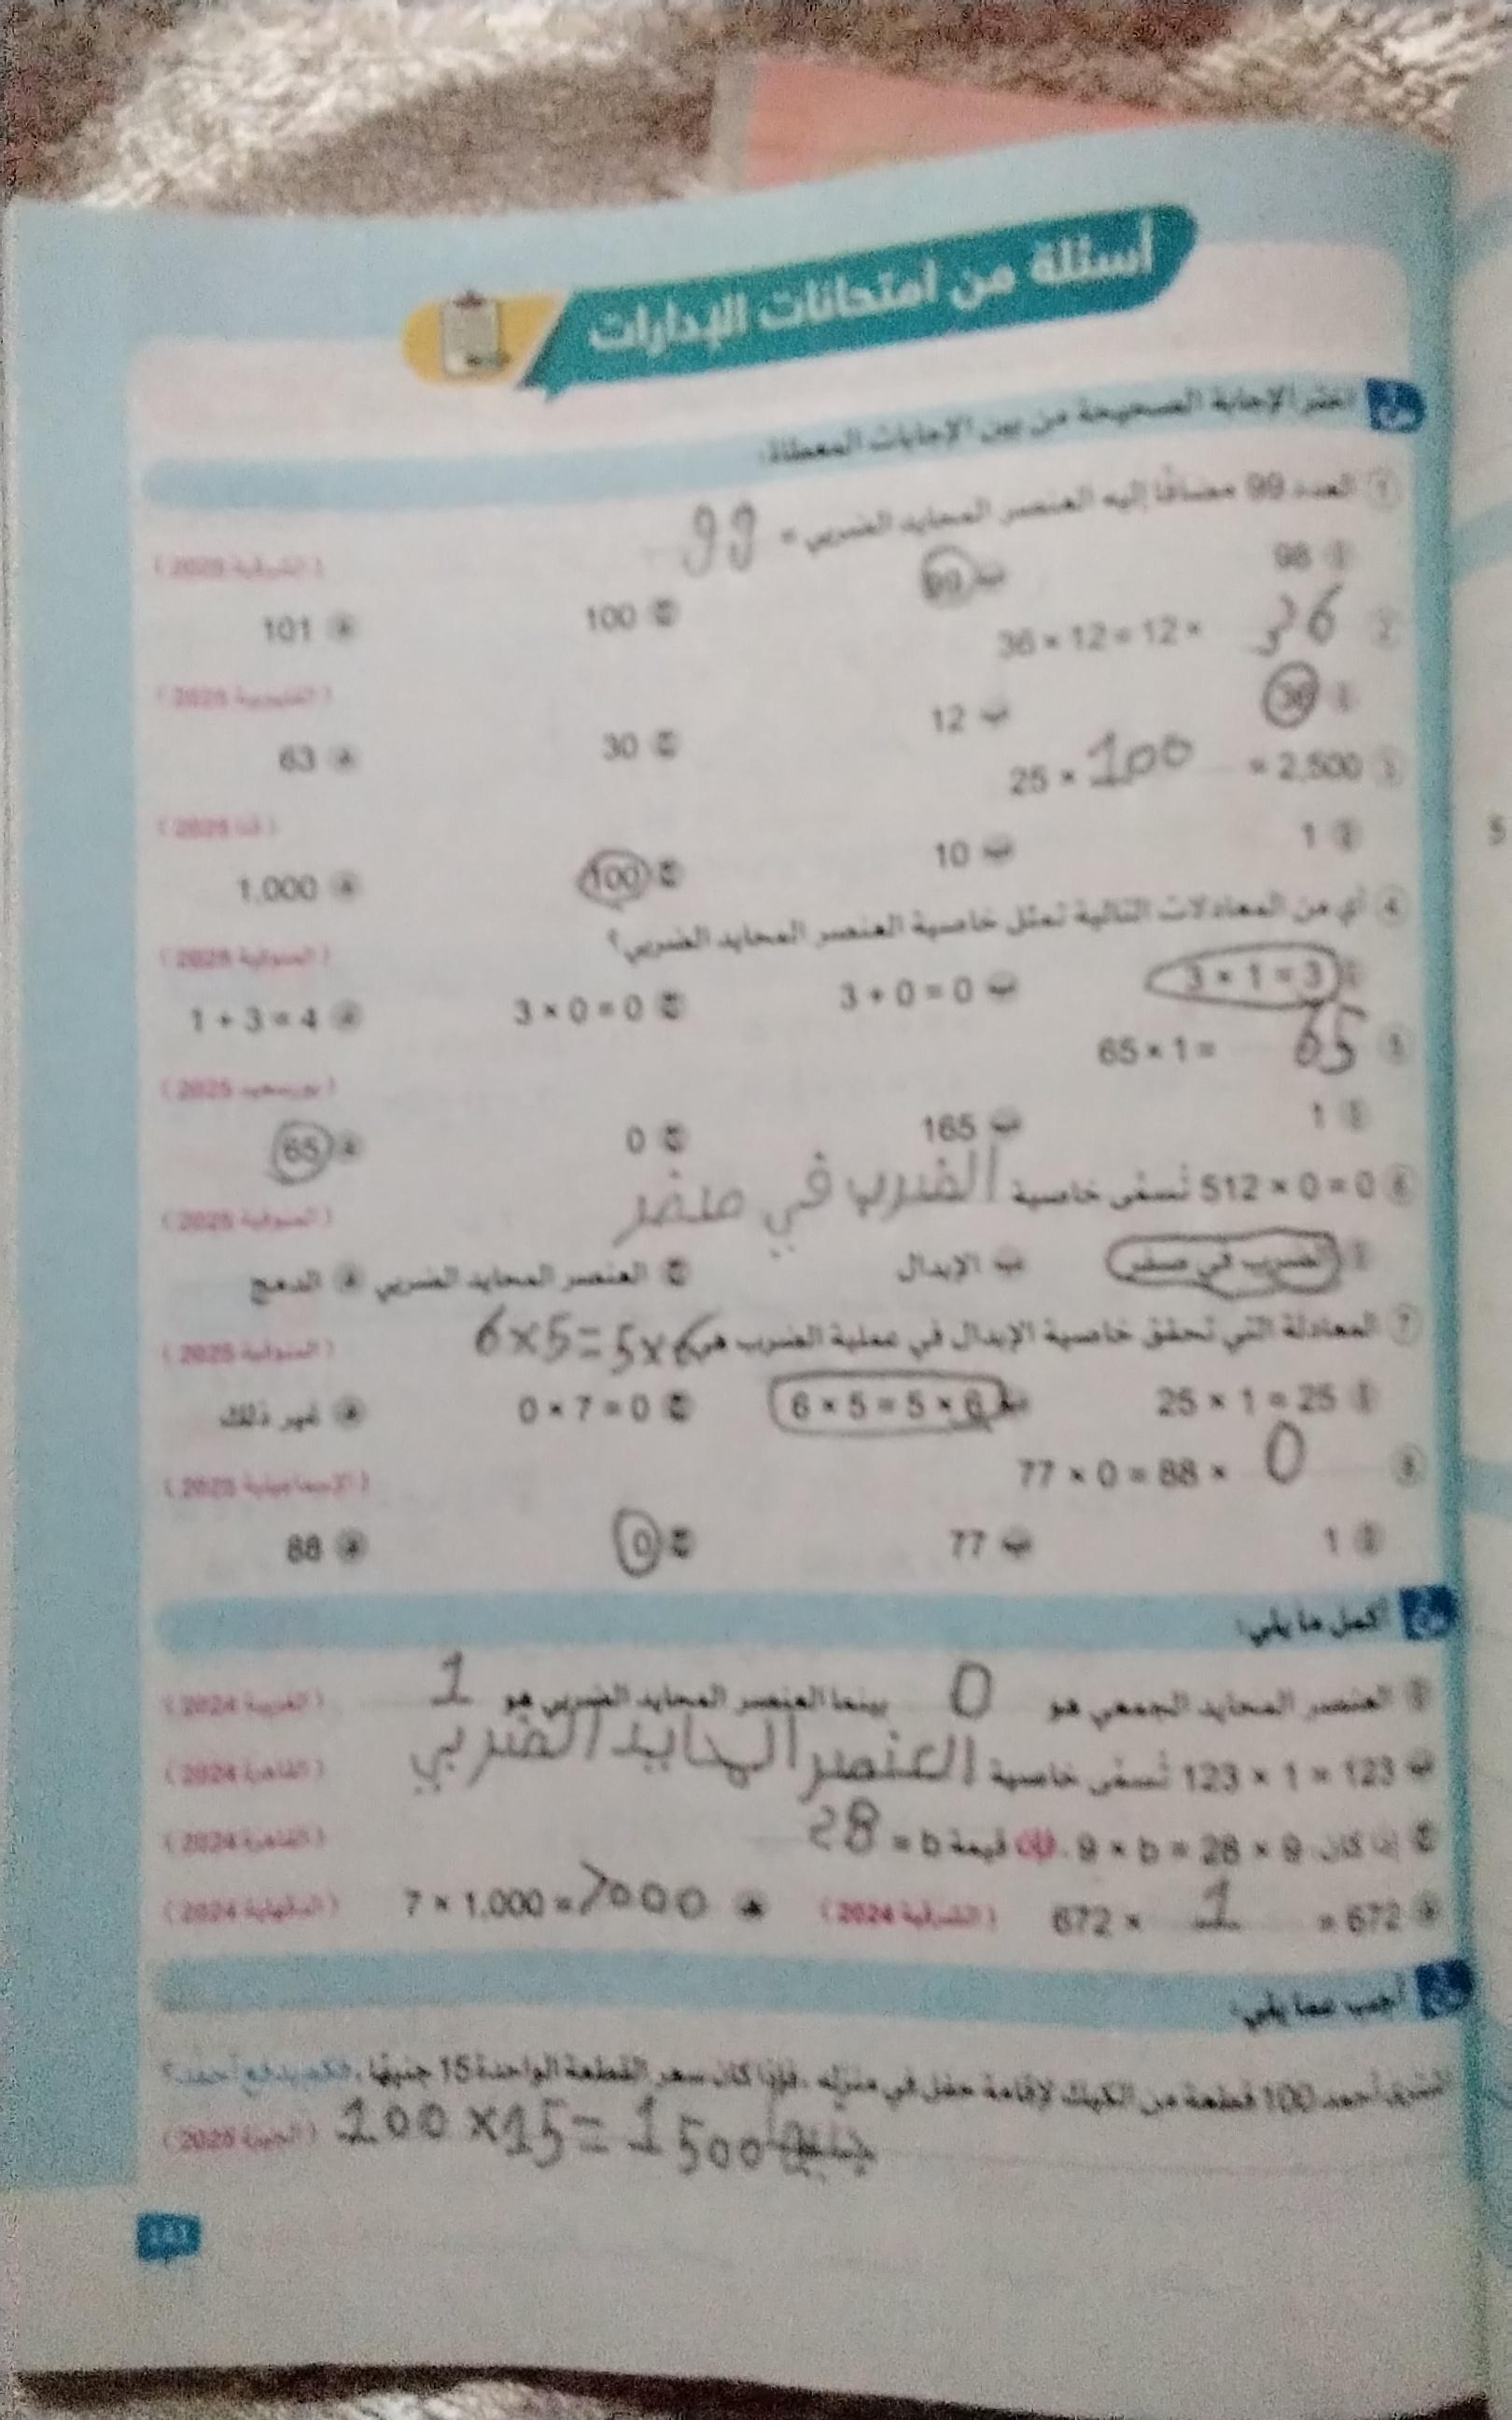 أسئلة من امتحانات الإدارات
اختر الإجابة الصحيحة من بين الإجابات المعطاة:
1 العدد 99 مضافًا إليه العنصر المحايد الضربي = 99
(الشرقية 2025)
أ 98 ب 99 ج 100 د 101
2 36 × 12 = 12 × 36
(القليوبية 2025)
أ 36 ب 12 ج 30 د 63
3 25 × 100 = 2,500
(قنا 2025)
أ 1 ب 10 ج 100 د 1,000
4 أي من المعادلات التالية تمثل خاصية العنصر المحايد الضربي؟
(المنوفية 2025)
أ 3 × 1 = 3 ب 3 + 0 = 0 ج 3 × 0 = 0 د 1 + 3 = 4
5 65 × 1 = 65
(بورسعيد 2025)
أ 1 ب 165 ج 0 د 65
6 512 × 0 = 0 تُسمى خاصية الضرب في صفر
(المنوفية 2025)
أ الضرب في صفر ب الإبدال ج العنصر المحايد الضربي د الدمج
7 المعادلة التي تحقق خاصية الإبدال في عملية الضرب هي 6×5=5×6
(المنوفية 2025)
أ 25 × 1 = 25 ب 6 × 5 = 5 × 6 ج 0 × 7 = 0 د غير ذلك
8 77 × 0 = 88 × 0
(الإسماعيلية 2025)
أ 1 ب 77 ج 0 د 88
أكمل ما يلي:
أ العنصر المحايد الجمعي هو 0 بينما العنصر المحايد الضربي هو 1 (الغربية 2024)
ب 123 × 1 = 123 تُسمى خاصية العنصر المحايد الضربي (القاهرة 2024)
ج إذا كان 9 × b = 28 × 9، فإن قيمة b = 28 (القاهرة 2024)
د 672 × 1 = 672 (الشرقية 2024) هـ 7 × 1,000 = 7000 (الدقهلية 2024)
أجب عما يلي:
اشترى أحمد 100 قطعة من الكيك لإقامة حفل في منزله، فإذا كان سعر القطعة الواحدة 15 جنيهًا، فكم يدفع أحمد؟
(الجيزة 2025) 100 ×15= 1500 جنيها